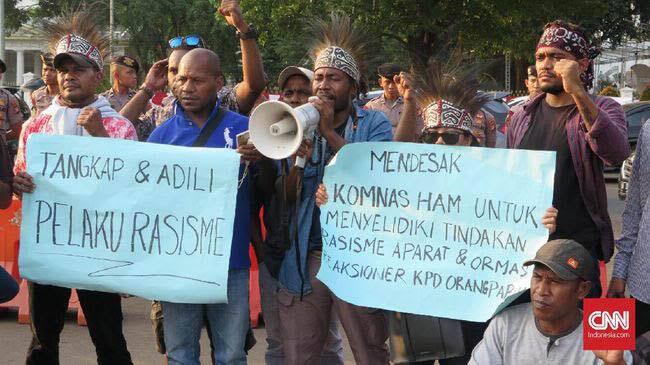 TANGKAP & ADILI
PELAKU RASISME
MENDESAK
KOMNAS HAM UNTUK
MENYELIDIKI TINDAKAN
RASISME APARAT & ORMAS
AKSIONER KPD ORANG
CNN
Indonesia